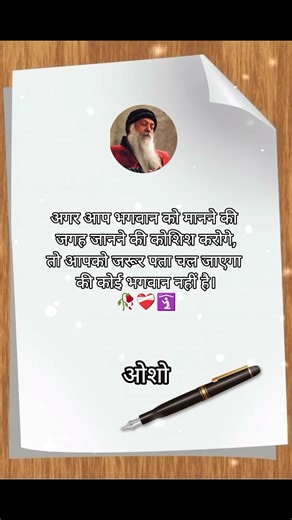 अगर आप भगवान को मानने की
जगह जानने की कोशिश करोगे,
तो आपको जरूर पता चल जाएगा
की कोई भगवान नहीं है।
🥀❤️‍🩹🛐
ओशो